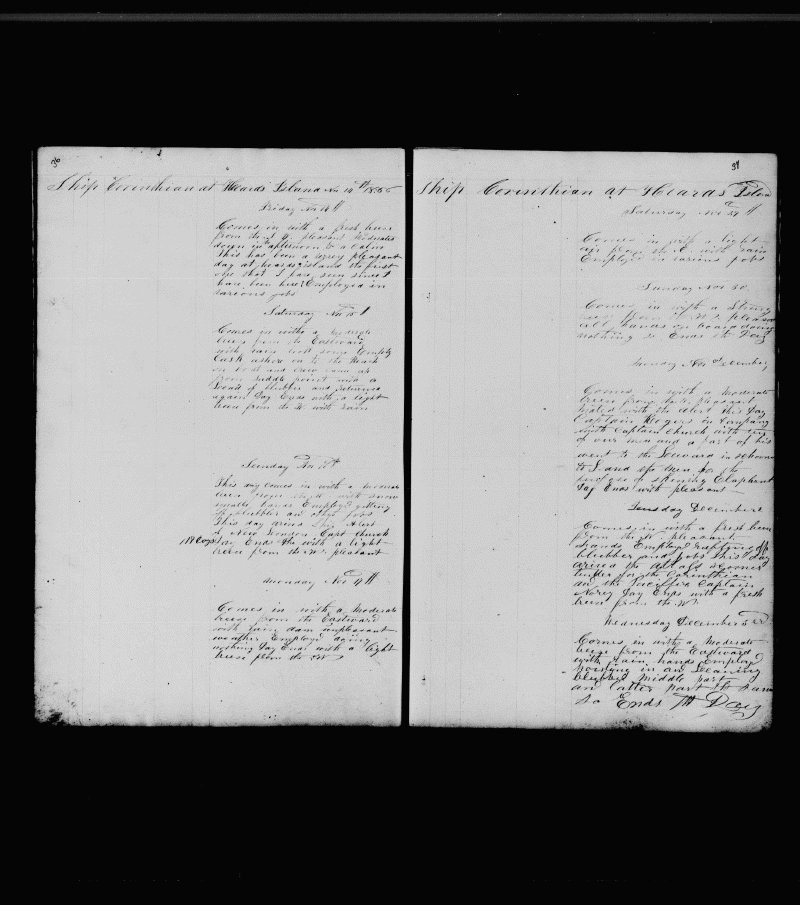 36
Ship Corinthian at Heards Island Nov 14th 1856
Friday Nov 14th
Comes in with a fresh breeze
from the N W pleasant Moderates
down in afternoon to a Calm
This has been a verry pleasant
day at heards island the first
one that I have seen since I
have been here Employed in
various jobs
Saturday Nov 15th
Comes in with a Moderate
breeze from the Eastward
with rain took some Empty
Cask ashore on to the Beach
boat and crew came up
from middle point with a
Load of blubber and returned
again Day Ends with a light
breeze from the N with rain
Sunday Nov 16th
This day comes in with a moderate
breeze from the with snow
smalls hands Employed getting
blubber an other jobs
This day arived Ship Alert
of New London Capt Church
Day Ends with a light
breeze from the N W pleasant
Monday Nov 17th
Comes in with a Moderate
breeze from the Eastward
with rain unpleasant
weather Employed doing
nothing Day Ends with a light
breeze from the
37
Ship Corinthian at Heards Island
Saturday Nov 29th
Comes in with a light
air from the E with rain
Employed in various jobs
Sunday Nov 30
Comes in with a Strong
breeze from N W pleasant
all hands on board doing
nothing so Ends the Day
Monday December
Comes in with a Moderate
breeze from the pleasant
the Alert this Day
Captain Rogers in Company
with Captain Church with
of our men and a part of his
went to the Leeward in schooner
to Land up men for the
purpose of skinning Elaphant
Day Ends with pleasant
Tuesday December 2
Comes in with a fresh breeze
from the pleasant
hands Employed rafting off
blubber and jobs this day
arived the
tender for the Corinthian
an the Captain
Day Ends with a fresh
breeze from the W
Wednesday December 3rd
Comes in with a Moderate
breeze from the Eastward
with rain hands Employed
in an Leaning
blubber middle part
an latter part the same
So Ends the Day